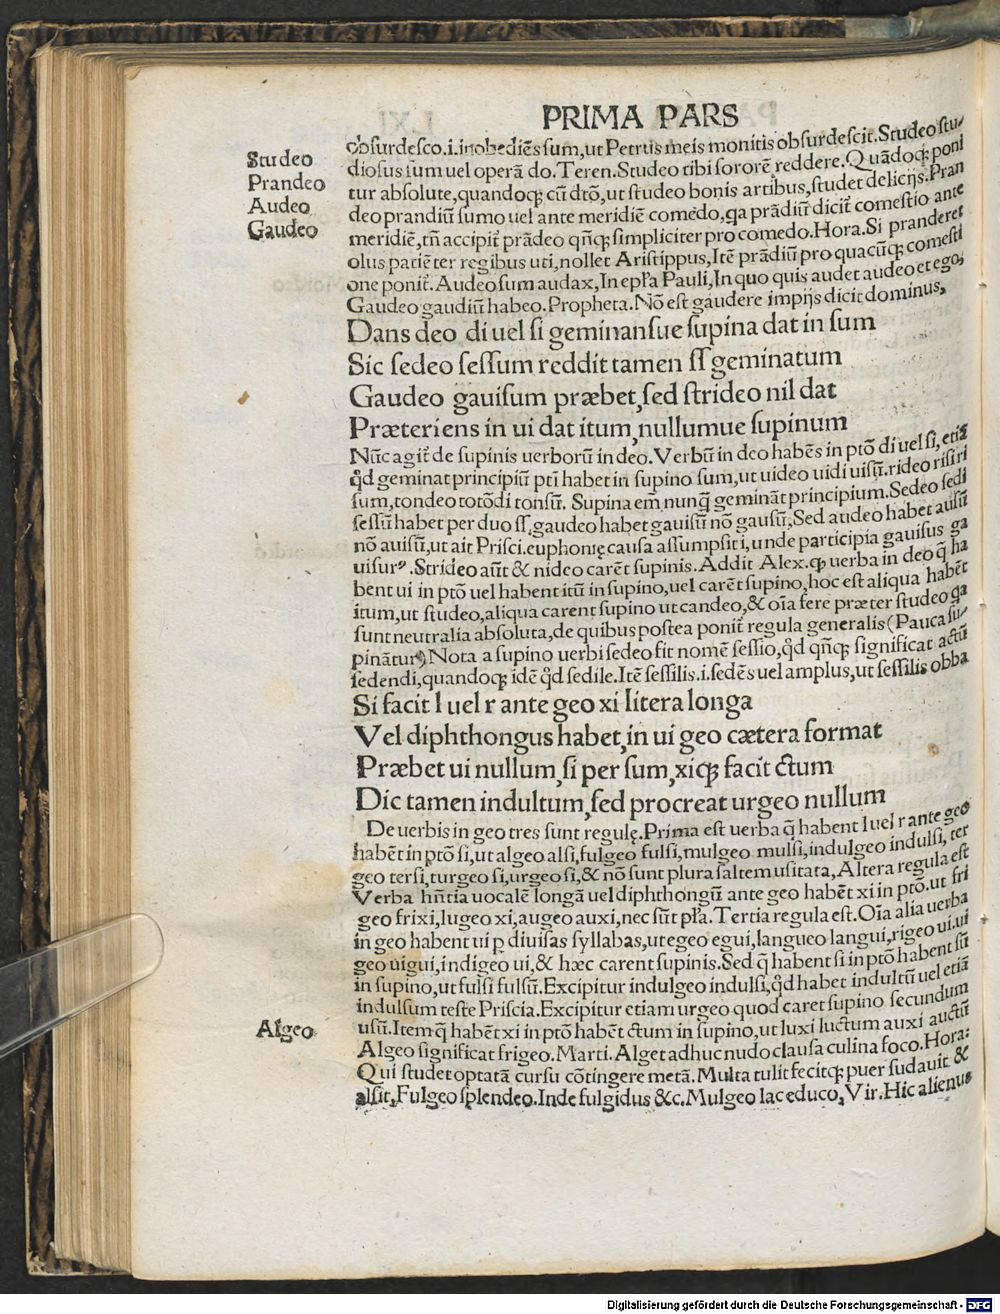 PRIMA PARS
obſurdeſco.i.inobediēs ſum,ut Petrus meis monitis obſurdeſcit.Studeo ſtu-
Studeo
dioſus ſum uel operā do.Teren.Studeo tibi ſororē reddere.Quādoqꝫ poni
Prandeo
tur abſolute,quandoqꝫ cū dtō,ut ſtudeo bonis artibus,ſtudet delicijs.Pran
Audeo
deo prandiū ſumo uel ante meridiē comedo,ga prādiū dicit̄ comeſtio ante
Gaudeo
meridiē,tn̄ accipit̄ prādeo qn̄qꝫ ſimpliciter pro comedo.Hora.Si pranderet
olus patiēter regibus uti,nollet Ariſtippus,Itē prādiū pro quacūqꝫ comeſti
one ponit̄.Audeo ſum audax,In epl̄a Pauli,In quo quis audet audeo et ego,
Gaudeo gaudiū habeo.Propheta.Nō eſt gaudere impijs dicit dominus,
Dans deo di uel ſi geminanſue ſupina dat in ſum
Sic ſedeo ſeſſum reddit tamen ſſ geminatum
Gaudeo gauiſum præbet,ſed ſtrideo nil dat
Præteriens in ui dat itum,nullumue ſupinum
Nūc agit̄ de ſupinis uerborū in deo.Verbū in deo habēs in ptō di uel ſi,etiā
qd̄ geminat principiū pti habet in ſupino ſum,ut uideo uidi uiſū.rideo riſi ri
ſum,tondeo totōdi tonſū. Supina em̄ nunq̄ gemināt principium.Sedeo ſedi
ſeſſū habet per duo ſſ,gaudeo habet gauiſū nō gauſū,Sed audeo habet auſū
nō auiſū,ut ait Priſci.euphonię cauſa aſſumpſit i,unde participia gauiſus ga
uiſurꝰ.Strideo aūt & nideo carēt ſupinis.Addit Alex.ꝙ uerba in deo q̄ ha
bent ui in ptō uel habent itū in ſupino,uel carēt ſupino,hoc eſt aliqua habēt
itum,ut ſtudeo,aliqua carent ſupino ut candeo,& oīa fere præter ſtudeo ga
ſunt neutralia abſoluta,de quibus poſtea ponit̄ regula generalis(Pauca ſu-
pinātur)Nota a ſupino uerbi ſedeo fit nomē ſeſſio,qd̄ qn̄qꝫ ſignificat actū
ſedendi,quandoqꝫ idē qd̄ ſedile.Itē ſeſſilis.i.ſedēs uel amplus,ut ſeſſilis obba
Si facit l uel r ante geo xi litera longa
Vel diphthongus habet,in ui geo cætera format
Præbet ui nullum,ſi per ſum,xiqꝫ facit ctum
Dic tamen indultum,ſed procreat urgeo nullum
De uerbis in geo tres ſunt regulę.Prima eſt uerba q̄ habent l uel r ante geo
habēt in ptō ſi,ut algeo alſi,fulgeo fulſi,mulgeo mulſi,indulgeo indulſi,ter
geo terſi,turgeo ſi,urgeo ſi,& nō ſunt plura ſaltem uſitata,Altera regula eſt
Verba hn̄tia uocalē longā uel diphthongū ante geo habēt xi in ptō.ut fri
geo frixi,lugeo xi,augeo auxi,nec ſūt pl̄a.Tertia regula eſt.Oīa alia uerba
in geo habent ui p diuiſas ſyllabas,ut egeo egui,langueo langui,rigeo ui.ui
geo uigui,indigeo ui,& hæc carent ſupinis.Sed q̄ habent ſi in ptō habent ſū
in ſupino,ut fulſi fulſū.Excipitur indulgeo indulſi,qd̄ habet indultū uel etiā
indulſum teſte Priſcia.Excipitur etiam urgeo quod caret ſupino ſecundum
uſū.Item q̄ habēt xi in ptō habēt ctum in ſupino,ut luxi luctum auxi auctū
Algeo
Algeo ſignificat frigeo.Marti.Alget adhuc nudo clauſa culina foco.Hora:
Qui ſtudet optatā curſu cōtingere metā.Multa tulit fecitqꝫ puer ſudauit &
alſit,Fulgeo ſplendeo.Inde fulgidus &c.Mulgeo lac educo,Vir.Hic alienus
Digitalisierung gefördert durch die Deutsche Forschungsgemeinschaft - DFG